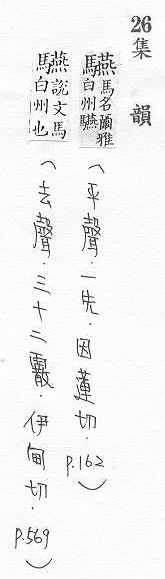 26 集韻
驠 馬名爾雅白州驠 (平聲.一先.因蓮切. p.162)
驠 說文馬白州也 (去聲.三十二霰.伊甸切. p.569)